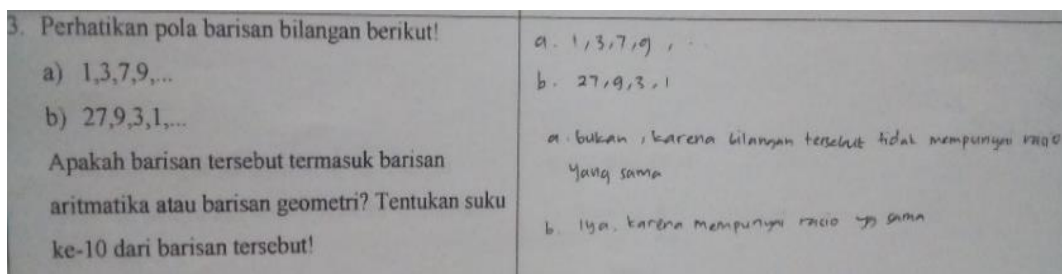 3. Perhatikan pola barisan bilangan berikut!
a) 1,3,7,9,...
b) 27,9,3,1,...
Apakah barisan tersebut termasuk barisan
aritmatika atau barisan geometri? Tentukan suku
ke-10 dari barisan tersebut!
a. 1,3,7,9, ..
b. 27,9,3,1
a. bukan, karena bilangan tersebut tidak mempunyai racio
yang sama
b. Iya, karena mempunyai racio yg sama